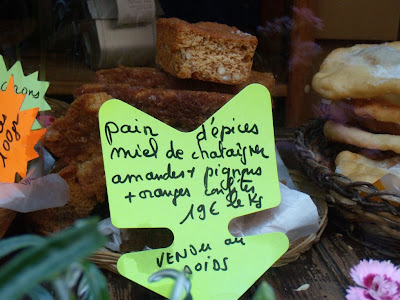 pain d'épices
miel de chataigner
amandes + pignons
+ oranges confites
19€ le kg
Vendu au
poids
100gr